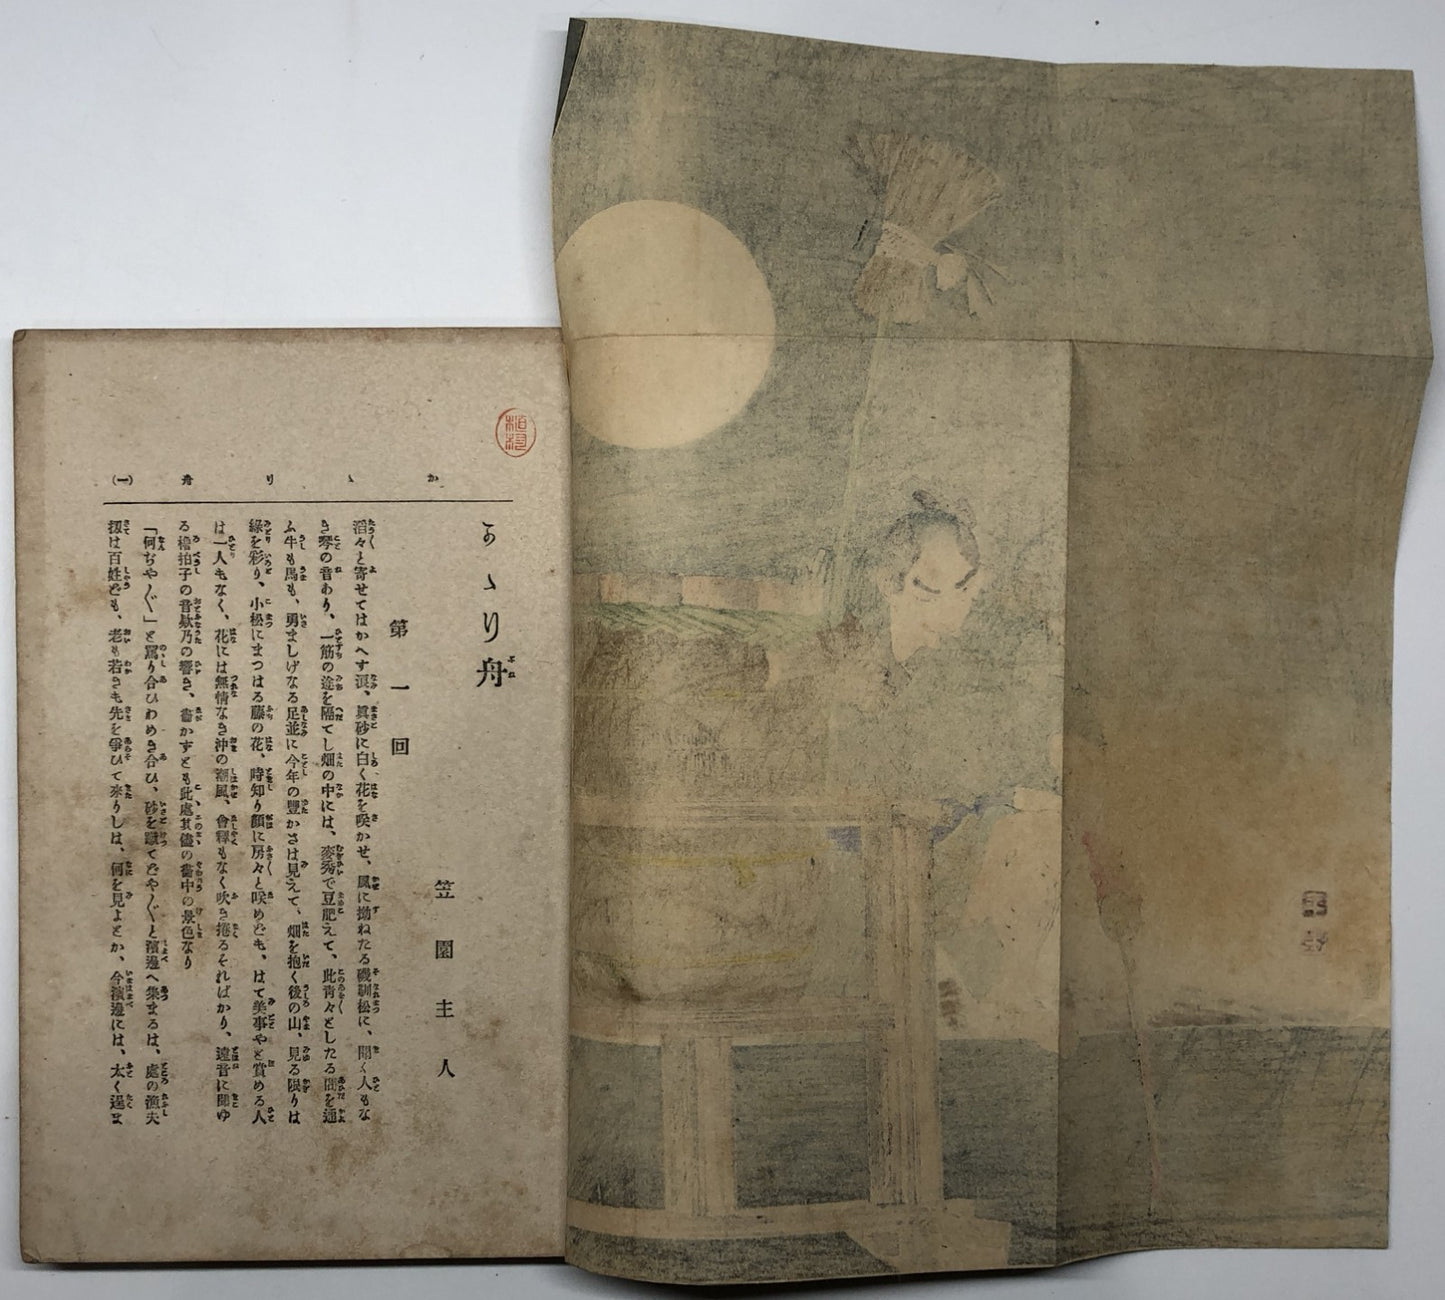 かゝり舟 (一)
かゝり舟
笠園主人
第一回
滔々と寄せてはかへす浪、眞砂に白く花を咲かせ、風に拗ねたる磯馴松に、聞く人もな
き琴の音あり、一筋の途を隔てし畑の中には、麥秀で豆肥えて、此靑々としたる間を通
ふ牛も馬も、勇ましげなる足並に今年の豐かさは見えて、畑を抱く後の山、見る限りは
綠を彩り、小松にまつはる藤の花、時知り顏に房々と咲めども、はて美事やと賞める人
は一人もなく、花には無情なき沖の潮風、會釋もなく吹き捲るそればかり、遠音に聞ゆ
る櫓拍子の音欸乃の響き、畵かずとも此處其儘の畵中の景色なり
「何ぢや〱」と罵り合ひわめき合ひ、砂を蹴てどや〱と濱邊へ集まるは、處の漁夫
扨は百姓ども、老も若きも先を爭ひて來りしは、何を見よとか、今濱邊には、太く逞ま